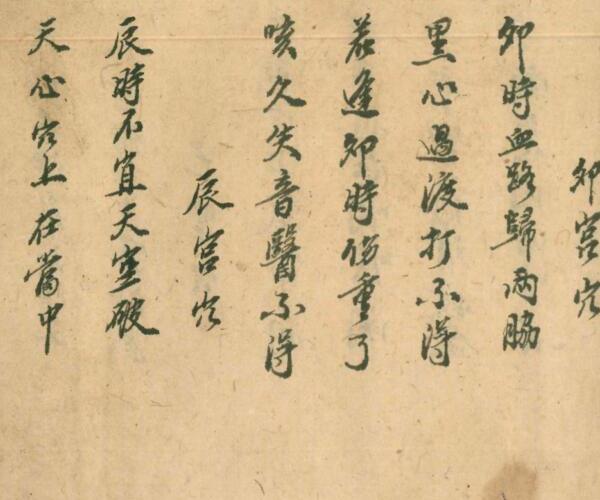 卯宮穴
卯時血路歸兩脇
黑心過渡打不淂
若逢卯時傷重了
咳久失音醫不淂
辰宮穴
辰時不宜天空破
天心穴上在當中